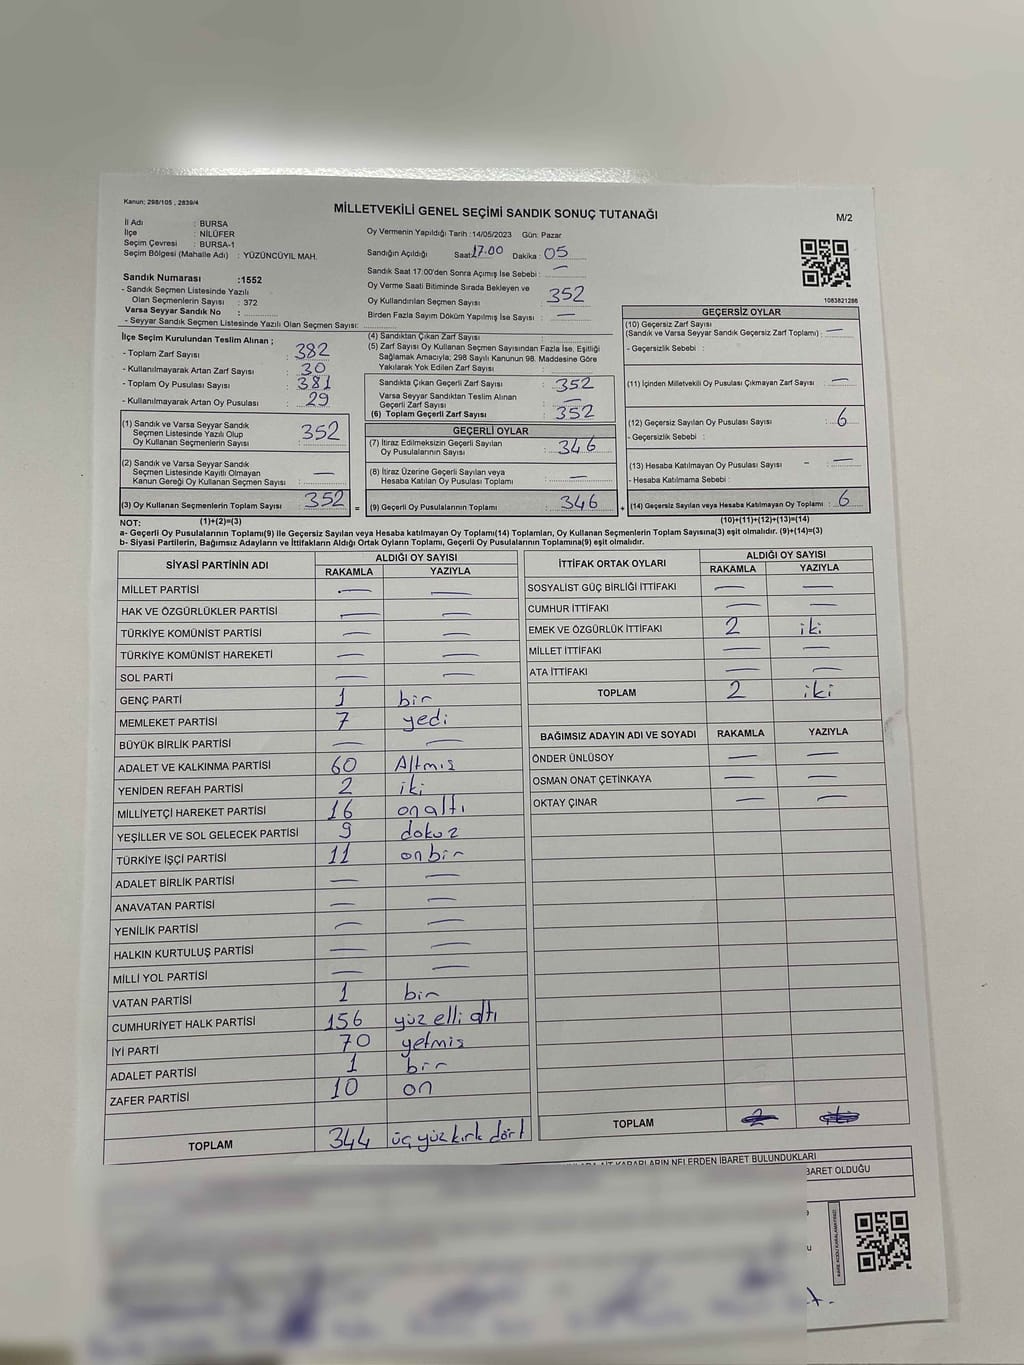 Kanun; 298/105 , 2839/4
MİLLETVEKİLİ GENEL SEÇİMİ SANDIK SONUÇ TUTANAĞI
M/2
İl Adı : BURSA
İlçe : NİLÜFER
Seçim Çevresi : BURSA-1
Seçim Bölgesi (Mahalle Adı) : YÜZÜNCÜYIL MAH.
Sandık Numarası :1552
- Sandık Seçmen Listesinde Yazılı
Olan Seçmenlerin Sayısı : 372
Varsa Seyyar Sandık No :
- Seyyar Sandık Seçmen Listesinde Yazılı Olan Seçmen Sayısı:
Oy Vermenin Yapıldığı Tarih :14/05/2023 Gün: Pazar
Sandığın Açıldığı Saat:17.00 Dakika : 05
Sandık Saat 17:00'den Sonra Açımış İse Sebebi : —
Oy Verme Saati Bitiminde Sırada Bekleyen ve
Oy Kullandırılan Seçmen Sayısı 352
Birden Fazla Sayım Döküm Yapılmış İse Sayısı : —
1083821286
İlçe Seçim Kurulundan Teslim Alınan ;
- Toplam Zarf Sayısı : 382
- Kullanılmayarak Artan Zarf Sayısı : 30
- Toplam Oy Pusulası Sayısı : 381
- Kullanılmayarak Artan Oy Pusulası : 29
(1) Sandık ve Varsa Seyyar Sandık
Seçmen Listesinde Yazılı Olup
Oy Kullanan Seçmenlerin Sayısı : 352
(2) Sandık ve Varsa Seyyar Sandık
Seçmen Listesinde Kayıtlı Olmayan
Kanun Gereği Oy Kullanan Seçmen Sayısı : —
(3) Oy Kullanan Seçmenlerin Toplam Sayısı : 352 =
(4) Sandıktan Çıkan Zarf Sayısı :
(5) Zarf Sayısı Oy Kullanan Seçmen Sayısından Fazla İse, Eşitliği
Sağlamak Amacıyla; 298 Sayılı Kanunun 98. Maddesine Göre
Yakılarak Yok Edilen Zarf Sayısı :
Sandıkta Çıkan Geçerli Zarf Sayısı : 352
Varsa Seyyar Sandıktan Teslim Alınan
Geçerli Zarf Sayısı : —
(6) Toplam Geçerli Zarf Sayısı : 352
GEÇERLİ OYLAR
(7) İtiraz Edilmeksizin Geçerli Sayılan
Oy Pusulalarının Sayısı : 346
(8) İtiraz Üzerine Geçerli Sayılan veya
Hesaba Katılan Oy Pusulası Toplamı : —
(9) Geçerli Oy Pusulalarının Toplamı : 346 +
GEÇERSİZ OYLAR
(10) Geçersiz Zarf Sayısı
(Sandık ve Varsa Seyyar Sandık Geçersiz Zarf Toplamı) : —
- Geçersizlik Sebebi :
(11) İçinden Milletvekili Oy Pusulası Çıkmayan Zarf Sayısı : —
(12) Geçersiz Sayılan Oy Pusulası Sayısı : 6
- Geçersizlik Sebebi :
(13) Hesaba Katılmayan Oy Pusulası Sayısı – : —
- Hesaba Katılmama Sebebi :
(14) Geçersiz Sayılan veya Hesaba Katılmayan Oy Toplamı : 6
NOT: (1)+(2)=(3) (10)+(11)+(12)+(13)=(14)
a- Geçerli Oy Pusulalarının Toplamı(9) ile Geçersiz Sayılan veya Hesaba Katılmayan Oy Toplamı(14) Toplamları, Oy Kullanan Seçmenlerin Toplam Sayısına(3) eşit olmalıdır. (9)+(14)=(3)
b- Siyasi Partilerin, Bağımsız Adayların ve İttifakların Aldığı Ortak Oyların Toplamı, Geçerli Oy Pusulalarının Toplamına(9) eşit olmalıdır.
SİYASİ PARTİNİN ADI ALDIĞI OY SAYISI
RAKAMLA YAZIYLA
MİLLET PARTİSİ — —
HAK VE ÖZGÜRLÜKLER PARTİSİ — —
TÜRKİYE KOMÜNİST PARTİSİ — —
TÜRKİYE KOMÜNİST HAREKETİ — —
SOL PARTİ — —
GENÇ PARTİ 1 bir
MEMLEKET PARTİSİ 7 yedi
BÜYÜK BİRLİK PARTİSİ — —
ADALET VE KALKINMA PARTİSİ 60 Altmış
YENİDEN REFAH PARTİSİ 2 iki
MİLLİYETÇİ HAREKET PARTİSİ 16 onaltı
YEŞİLLER VE SOL GELECEK PARTİSİ 9 dokuz
TÜRKİYE İŞÇİ PARTİSİ 11 onbir
ADALET BİRLİK PARTİSİ — —
ANAVATAN PARTİSİ — —
YENİLİK PARTİSİ — —
HALKIN KURTULUŞ PARTİSİ — —
MİLLİ YOL PARTİSİ — —
VATAN PARTİSİ 1 bir
CUMHURİYET HALK PARTİSİ 156 yüz elli altı
İYİ PARTİ 70 yetmiş
ADALET PARTİSİ 1 bir
ZAFER PARTİSİ 10 on
TOPLAM 344 üç yüz kırk dört
İTTİFAK ORTAK OYLARI ALDIĞI OY SAYISI
RAKAMLA YAZIYLA
SOSYALİST GÜÇ BİRLİĞİ İTTİFAKI — —
CUMHUR İTTİFAKI — —
EMEK VE ÖZGÜRLÜK İTTİFAKI 2 iki
MİLLET İTTİFAKI — —
ATA İTTİFAKI — —
TOPLAM 2 iki
BAĞIMSIZ ADAYIN ADI VE SOYADI RAKAMLA YAZIYLA
ÖNDER ÜNLÜSOY — —
OSMAN ONAT ÇETİNKAYA — —
OKTAY ÇINAR — —
TOPLAM
AİT KARARLARIN NELERDEN İBARET BULUNDUKLARI
BARET OLDUĞU